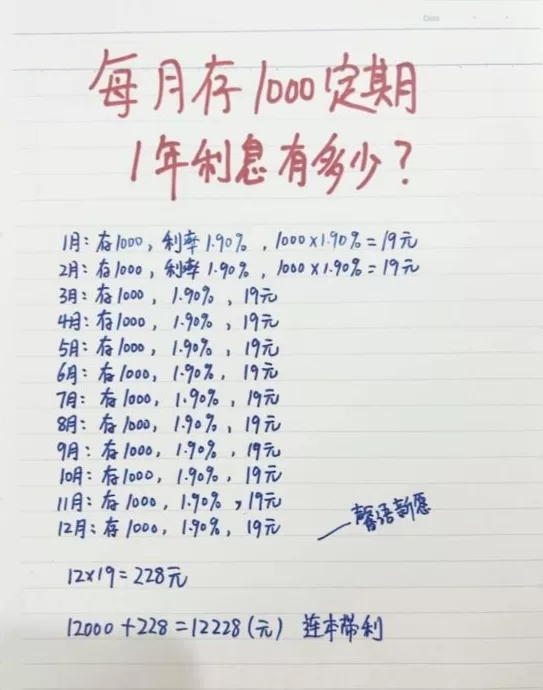 Date
每月存1000定期
1年利息有多少?
1月: 存1000, 利率1.90%, 1000×1.90%=19元
2月: 存1000, 利率1.90%, 1000×1.90%=19元
3月: 存1000, 1.90%, 19元
4月: 存1000, 1.90%, 19元
5月: 存1000, 1.90%, 19元
6月: 存1000, 1.90%, 19元
7月: 存1000, 1.90%, 19元
8月: 存1000, 1.90%, 19元
9月: 存1000, 1.90%, 19元
10月: 存1000, 1.90%, 19元
11月: 存1000, 1.90%, 19元
12月: 存1000, 1.90%, 19元
——馨语新愿
12×19=228元
12000+228=12228(元) 连本带利